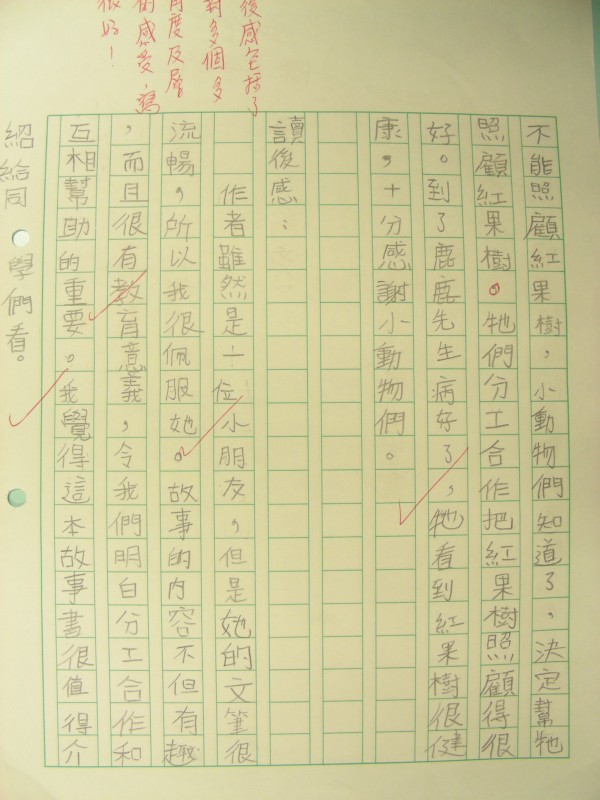 不能照顧紅果樹，小動物們知道了，決定幫牠
照顧紅果樹。牠們分工合作把紅果樹照顧得很
好。到了鹿鹿先生病好了，牠看到紅果樹很健
康，十分感謝小動物們。
讀後感：
作者雖然是一位小朋友，但是她的文筆很
流暢，所以我很佩服她。故事的內容不但有趣
，而且很有教育意義，令我們明白分工合作和
互相幫助的重要。我覺得這本故事書很值得介
紹給同學們看。
後感包括了
對多個多
角度及層
感受，寫
很好！